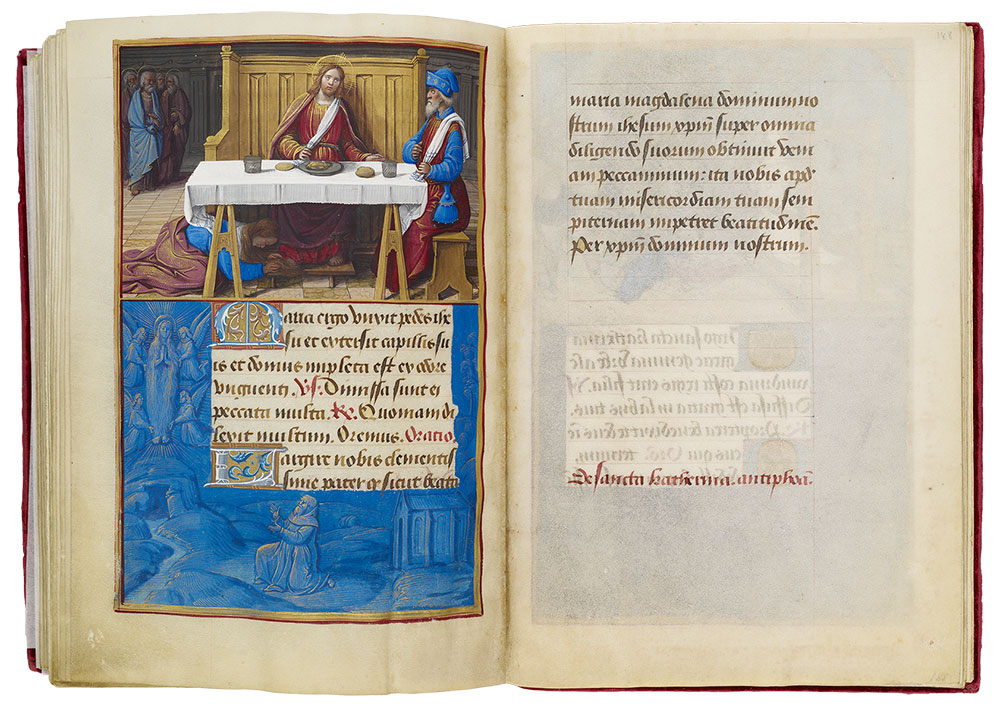 Maria ergo unxit pedes ihe
su et extersit capillis su
is et domus impleta est ex odore
unguenti. Vs. Dimissa sunt ei
peccata multa. Re. Quoniam di
lexit multum. Oremus. Oratio.
Largire nobis clementis
sime pater qr sicut beata
148
maria magdalena dominum no
strum ihesum xpm̃ super omnia
diligendo suorum obtinuit veni
am peccaminum: ita nobis apd̃
tuam misericordiam tuam sem
piternam impetret beatitudinẽ.
Per xpm̃ dominum nostrum.
De sancta katherina. antiphoã.